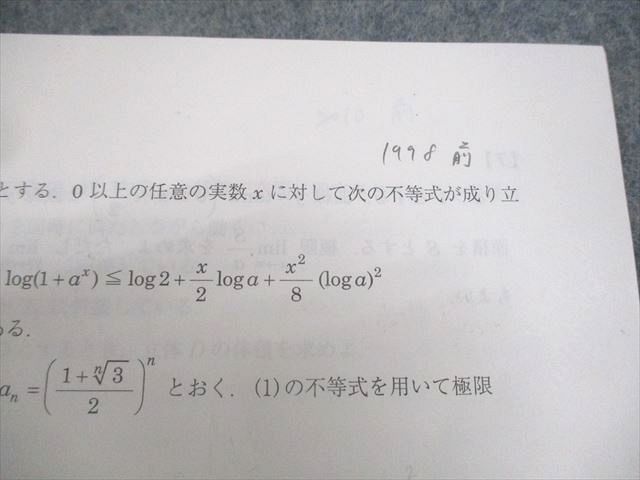 1998 前
とする. 0以上の任意の実数 x に対して次の不等式が成り立
log(1+a^x) ≦ log2 + x/2 loga + x^2/8 (loga)^2
ある.
a_n = ((1+ⁿ√3)/2)^n とおく. (1)の不等式を用いて極限